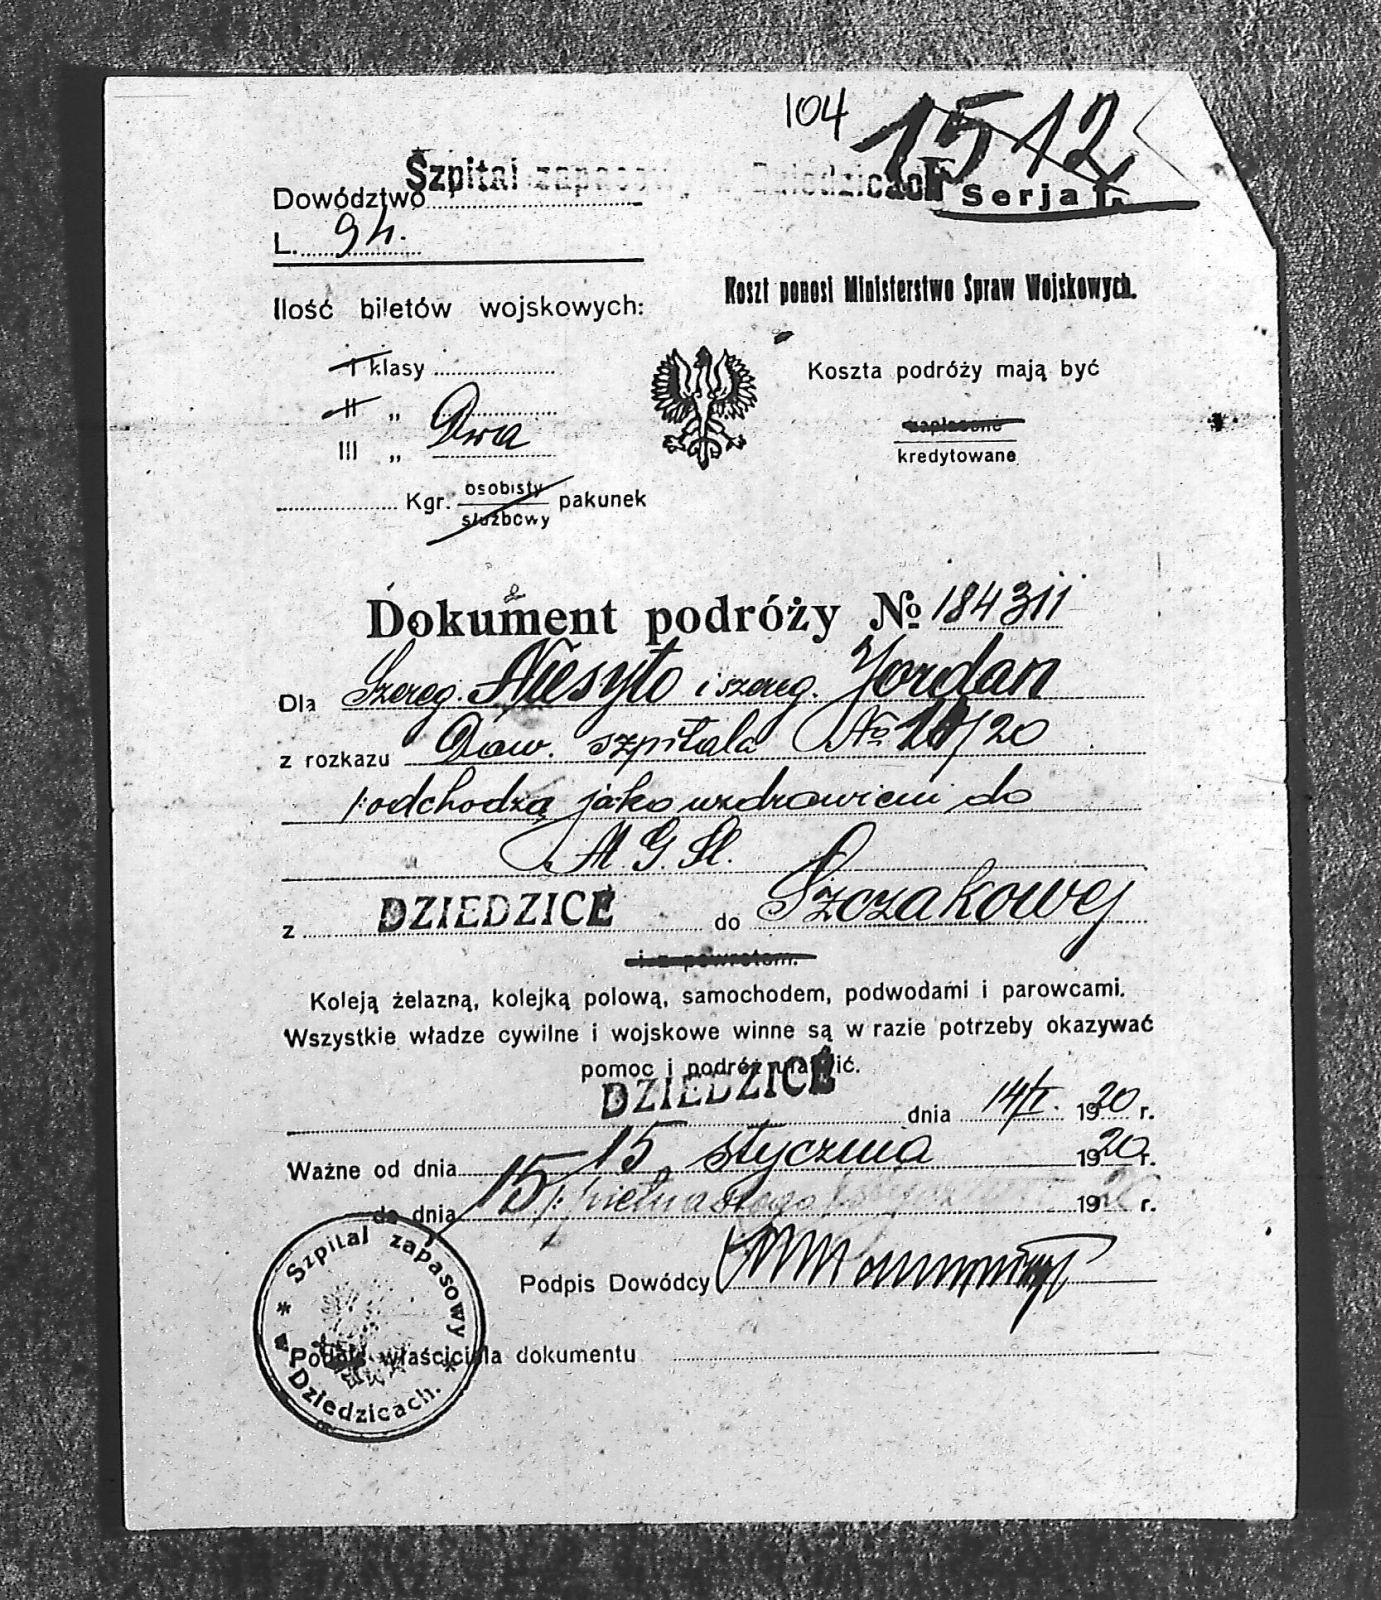 104 1512
Dowództwo Szpital zapasowy w Dziedzicach Serja
L. 94.
Koszt ponosi Ministerstwo Spraw Wojskowych.
Ilość biletów wojskowych:
I klasy
Koszta podróży mają być
II „
zapłacone
III „ Dwa
kredytowane
Kgr. osobisty służbowy pakunek
Dokument podróży № 184311
Dla Szereg. Niesyto i szereg. Jordan
z rozkazu Dow. szpitala № /20
odchodzą jako uzdrowieni do
z DZIEDZICE do Szczakowej
i z powrotem.
Koleją żelazną, kolejką polową, samochodem, podwodami i parowcami.
Wszystkie władze cywilne i wojskowe winne są w razie potrzeby okazywać
pomoc i podróż ułatwić.
DZIEDZICE dnia 14/I. 1920 r.
Ważne od dnia 15 stycznia 1920 r.
do dnia 15 /: pietnastego stycznia 1920 r.
Podpis Dowódcy
Podpis właściciela dokumentu
* Szpital zapasowy * w Dziedzicach.